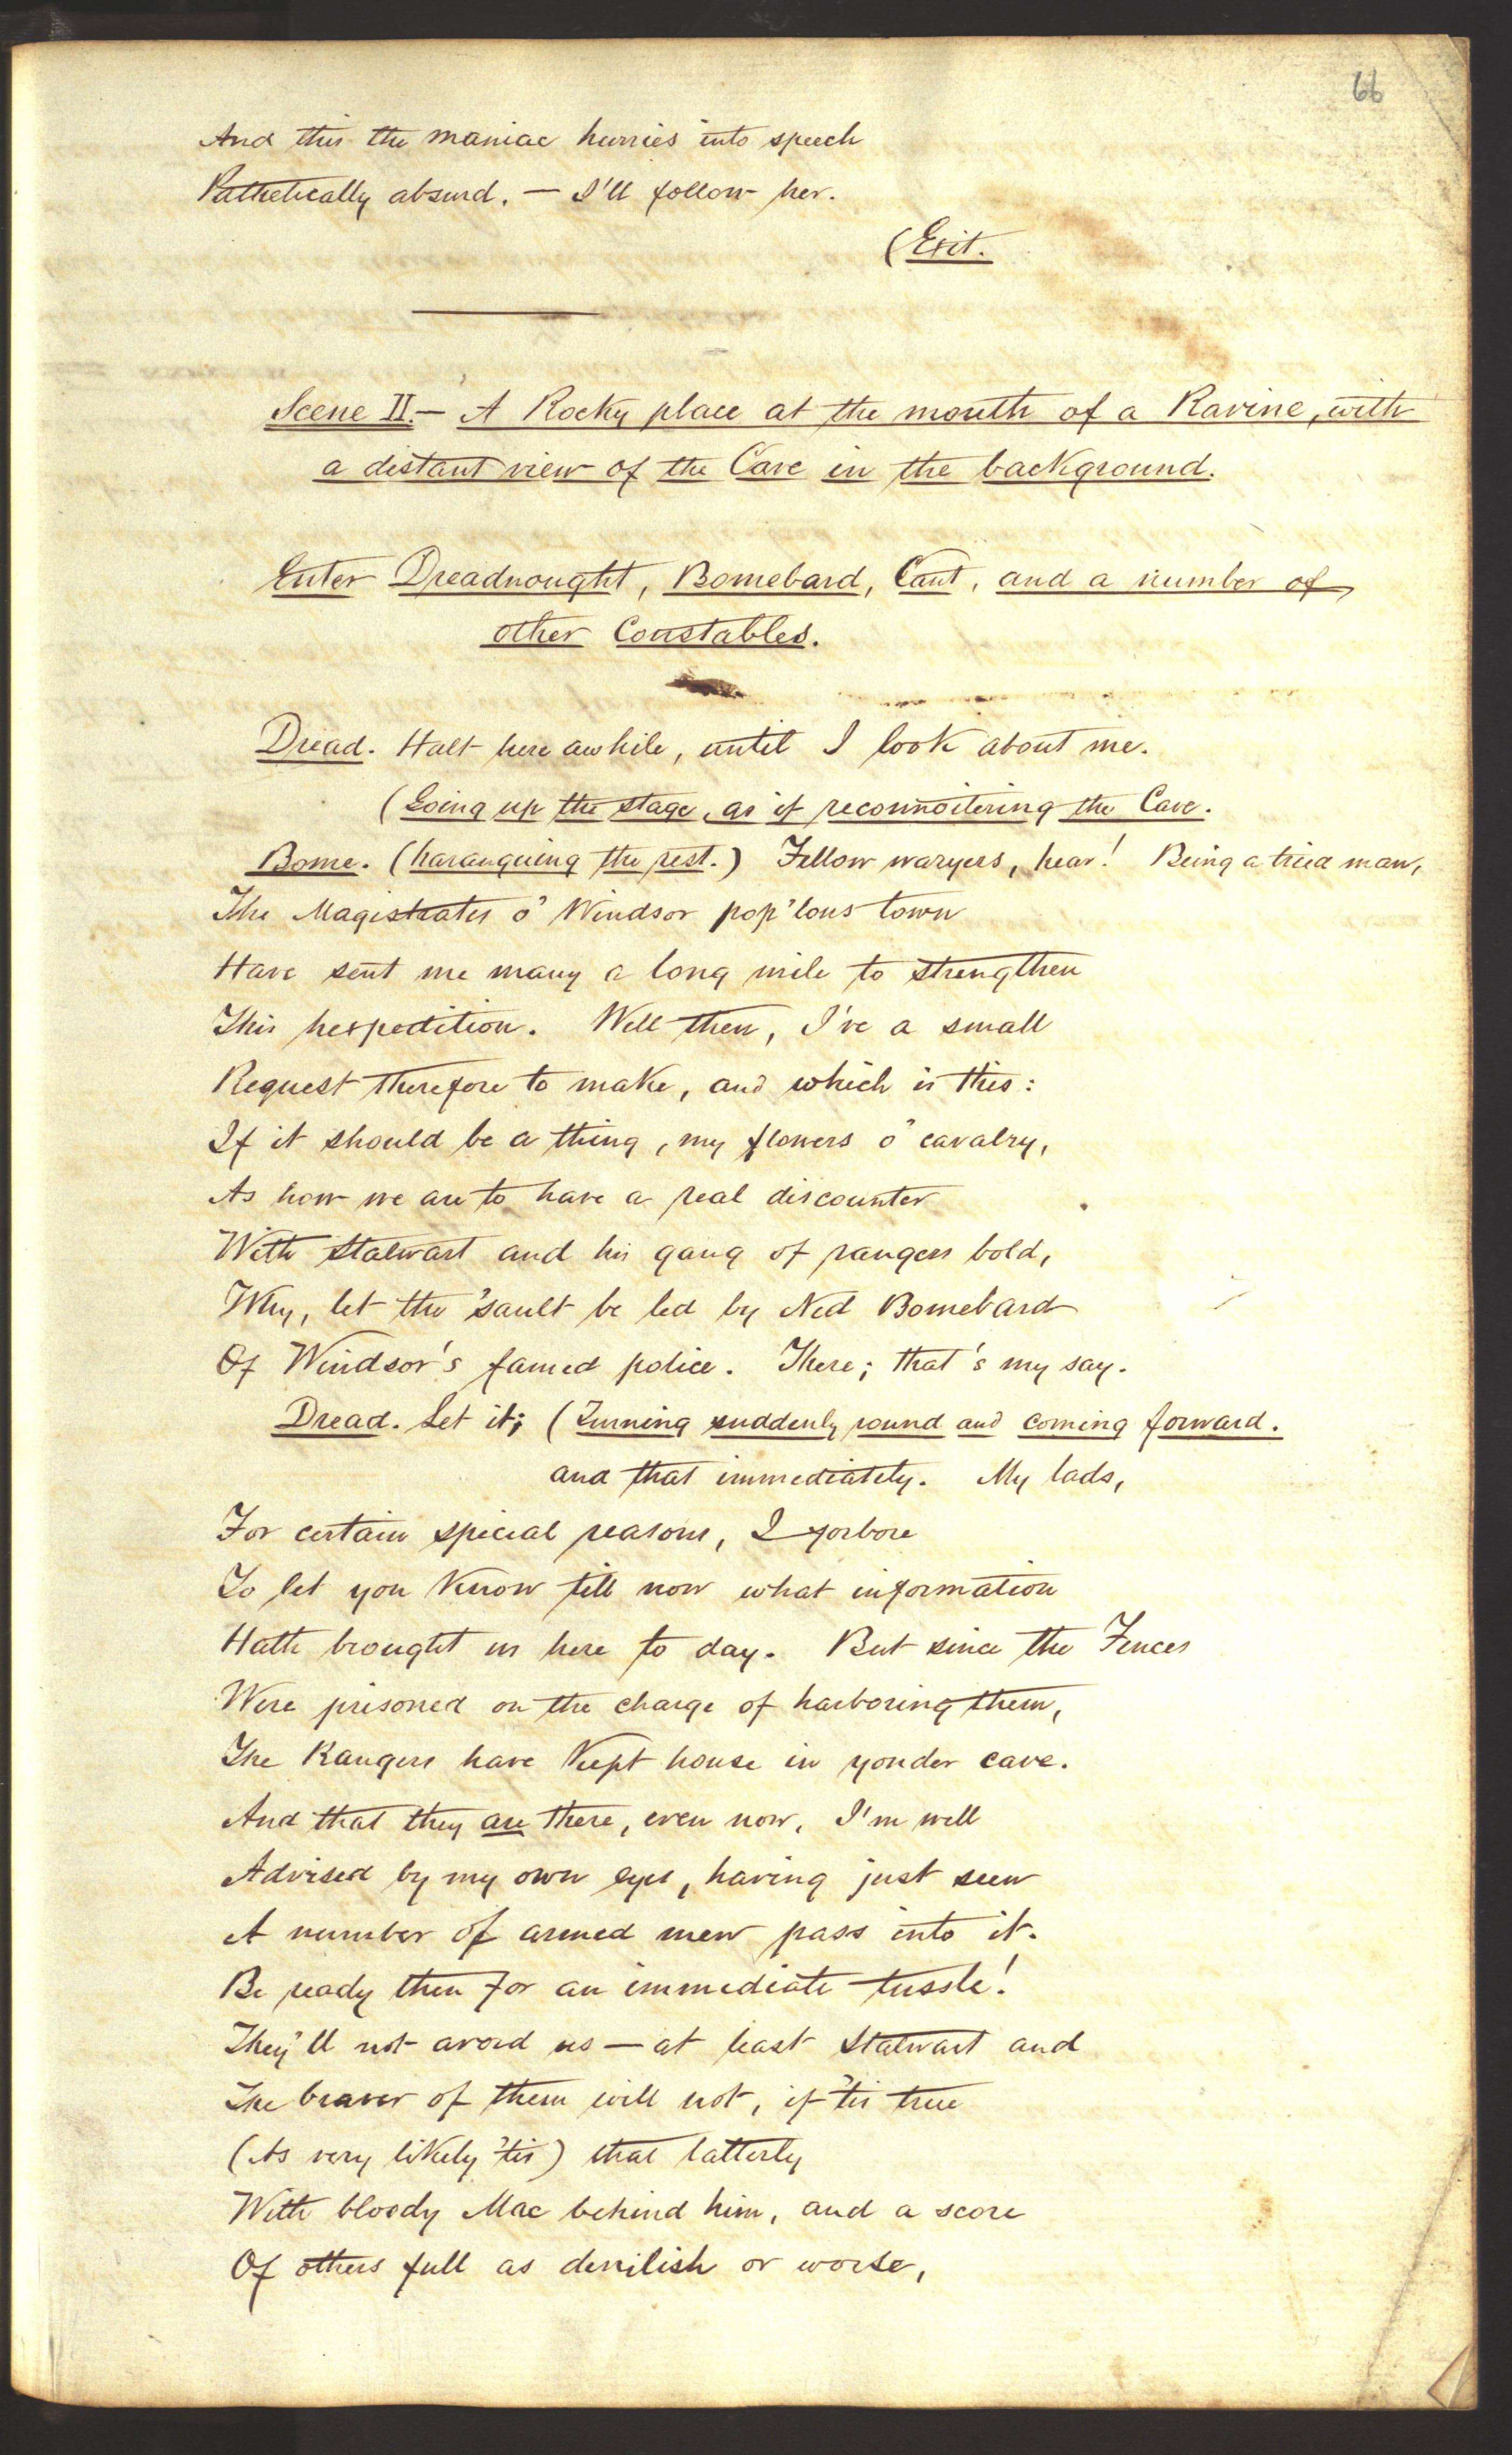 66
And this the maniac hurries into speech
Pathetically absurd. — I'll follow her.
(Exit.
Scene II. — A Rocky place at the mouth of a Ravine, with
a distant view of the Cave in the background.
Enter Dreadnought, Bomebard, Cant, and a number of
other Constables.
Dread. Halt here awhile, until I look about me.
(Going up the stage, as if reconnoitering the Cave.
Bome. (haranguing the rest.) Fellow waryers, hear! Being a tried man,
The Magistrates o' Windsor pop'lous town
Have sent me many a long mile to strengthen
This hexpedition. Well then, I've a small
Request therefore to make, and which is this:
If it should be a thing, my flowers o' cavalry,
As how we are to have a real discounter
With Stalwart and his gang of rangers bold,
Why, let the 'sault be led by Ned Bomebard
Of Windsor's famed police. There; that's my say.
Dread. Let it; (Turning suddenly round and coming forward.
and that immediately. My lads,
For certain special reasons, I forbore
To let you know till now what information
Hath brought us here to day. But since the Fences
Were prisoned on the charge of harboring them,
The Rangers have kept house in yonder cave.
And that they are there, even now, I'm well
Advised by my own eyes, having just seen
A number of armed men pass into it.
Be ready then for an immediate tussle!
They'll not avoid us — at least Stalwart and
The braver of them will not, if 'tis true
(As very likely 'tis) that latterly
With bloody Mac behind him, and a score
Of others full as devilish or worse,